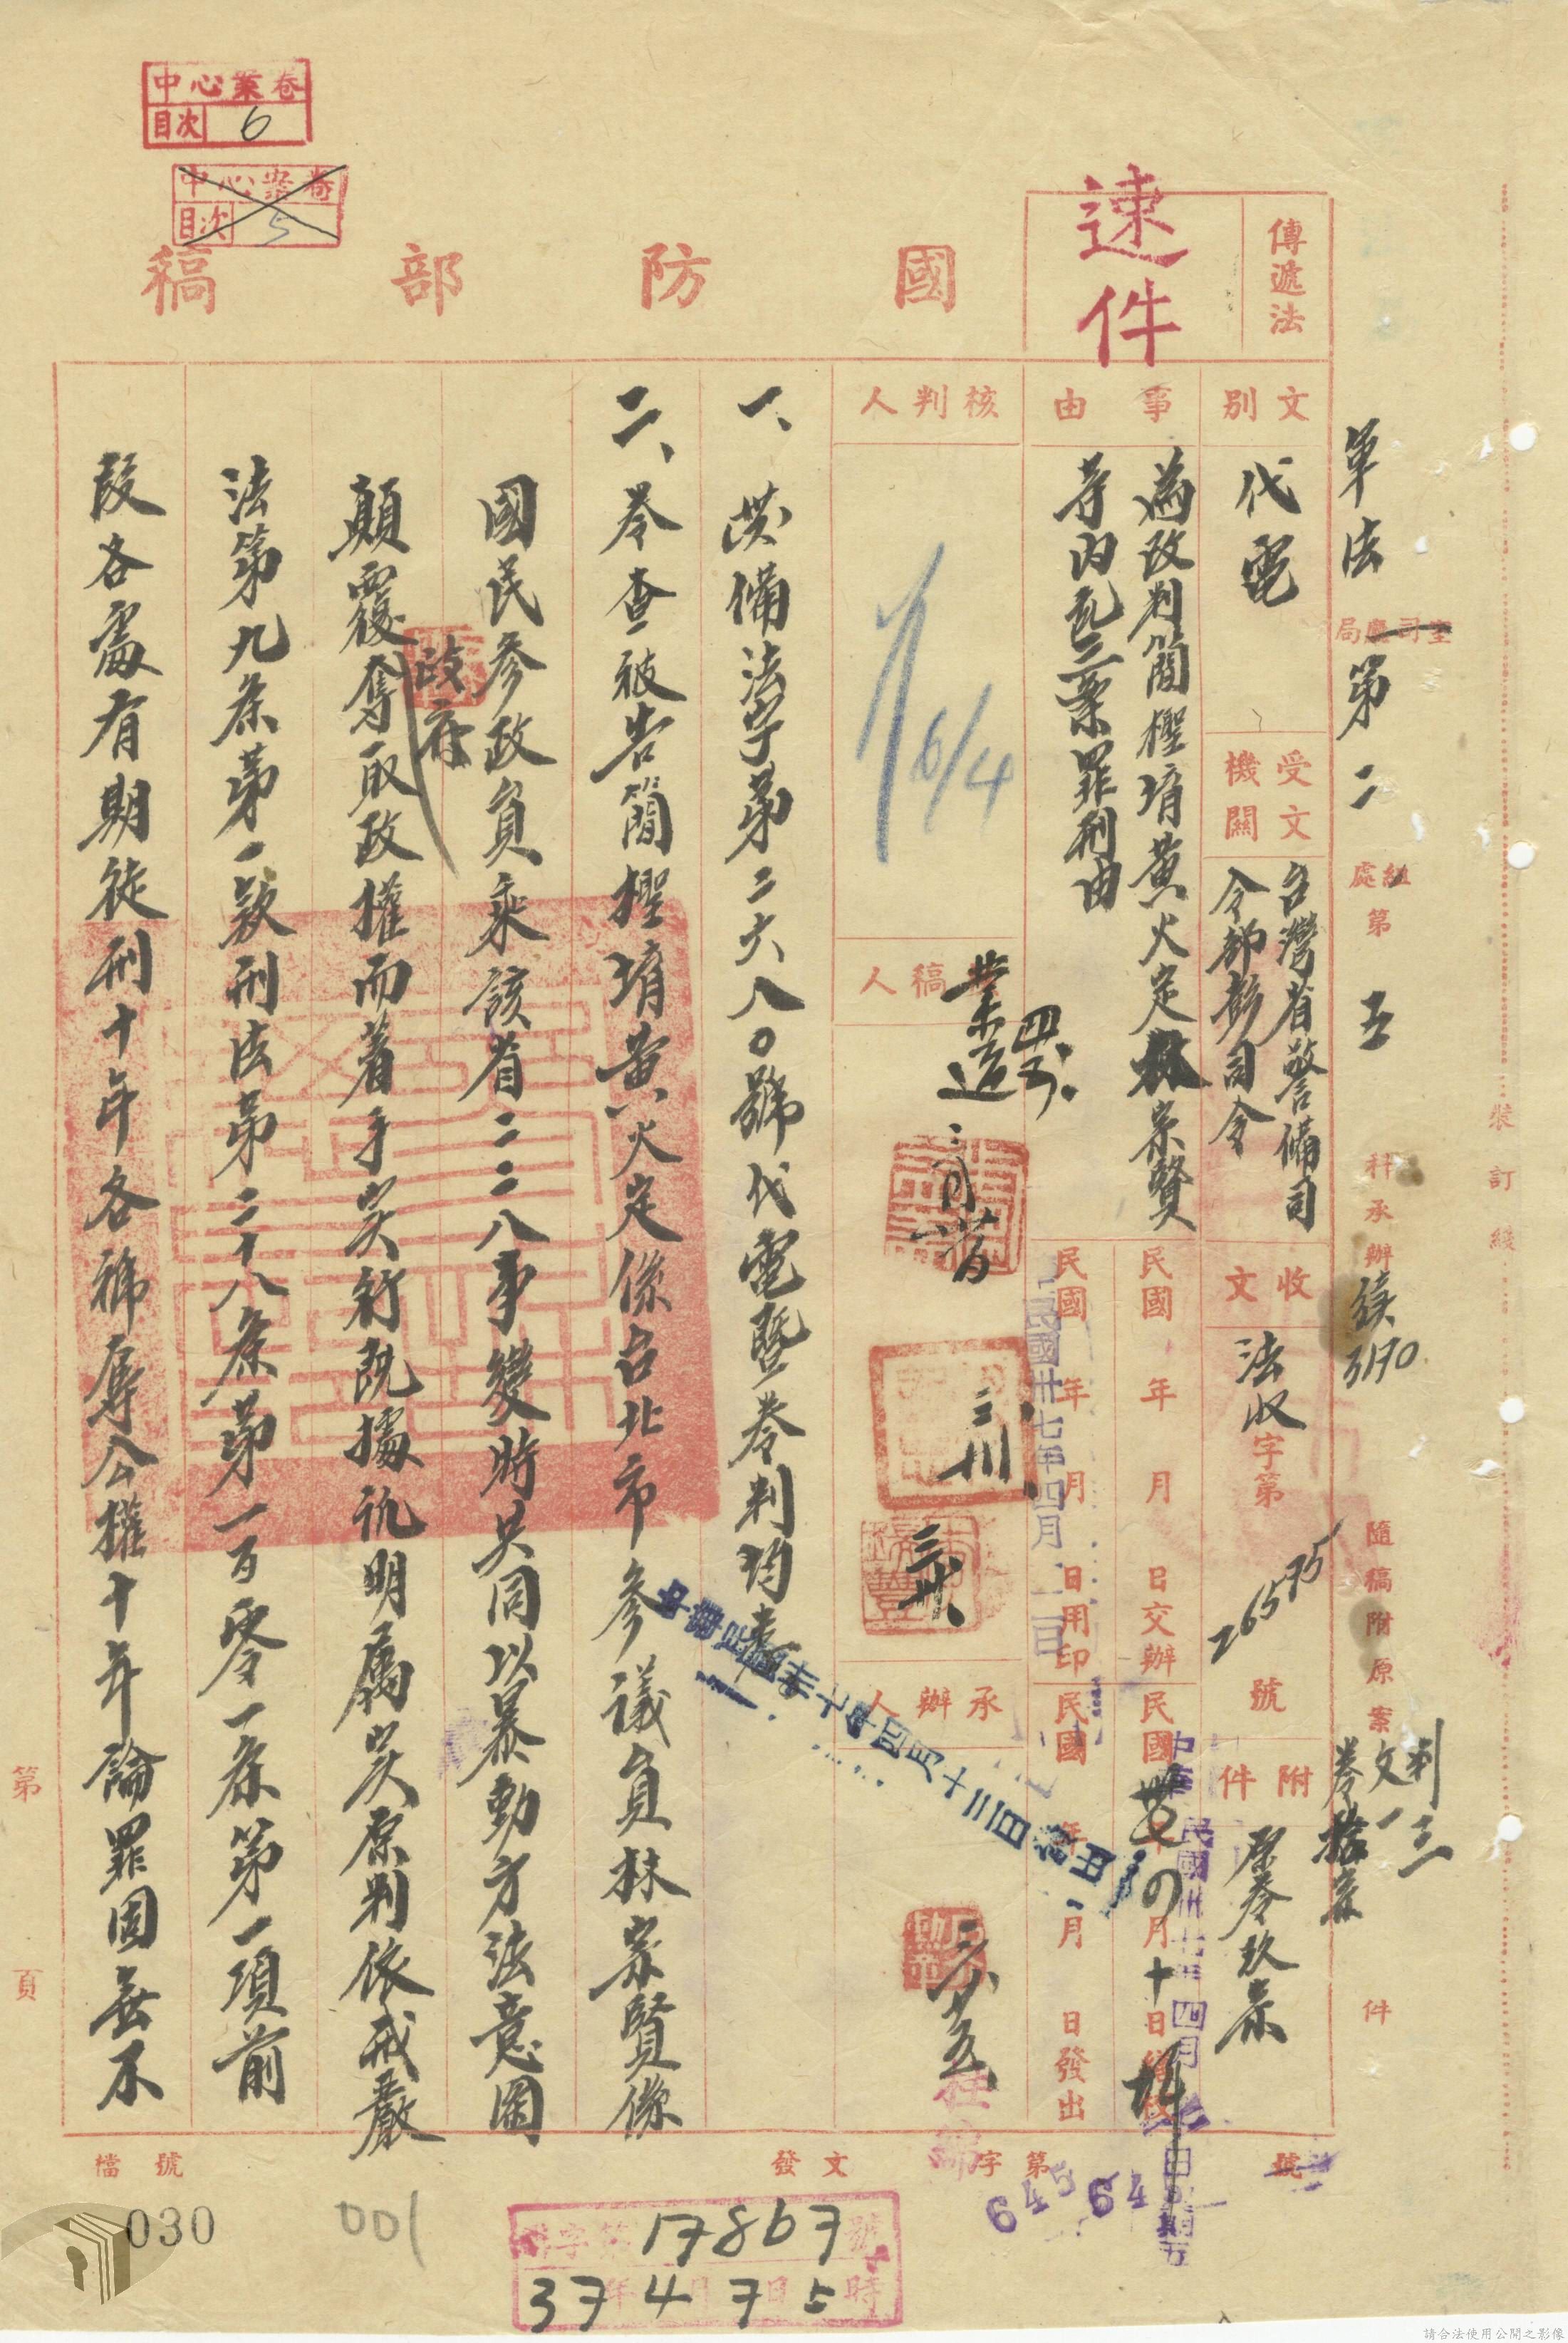 中心業卷
目次 6
中心業卷
目次 5
國防部稿
傳遞法
速件
軍法局第二處第五科承辦
續3170
隨稿附原案 件
判文一 卷拾宗
裝訂線
文別
代電
受文機關
台灣省警備司
令部彭司令
收文
法收字第26575號
附件
原卷玖宗
事由
為改判簡檉堉黃火定林宗賢
等內亂三案罪刑由
民國 年 月 日交辦
民國卅七年四月十日繕校
民國 年 月 日用印
民國卅七年四月
民國 年 月 日發出
中華民國卅七年四月十三日發出
核判人
6/4
核稿人
承辦人
一、
法字第二六八〇號代電暨卷判均悉
二、卷查被告簡檉堉黃火定係台北市參議員林宗賢係
國民參政員乘該省二二八事變時共同以暴動方法意圖
顛覆政府奪取政權而著手实行既據讯明屬实原判依戒嚴
法第九条第一款刑法第二十八条第一百零一条第一項前
段各處有期徒刑十年各褫奪公權十年論罪固無不
第 頁
檔號
發文 字第 號
64564
17867
37年4月7日5時
030
001
請合法使用公開之影像